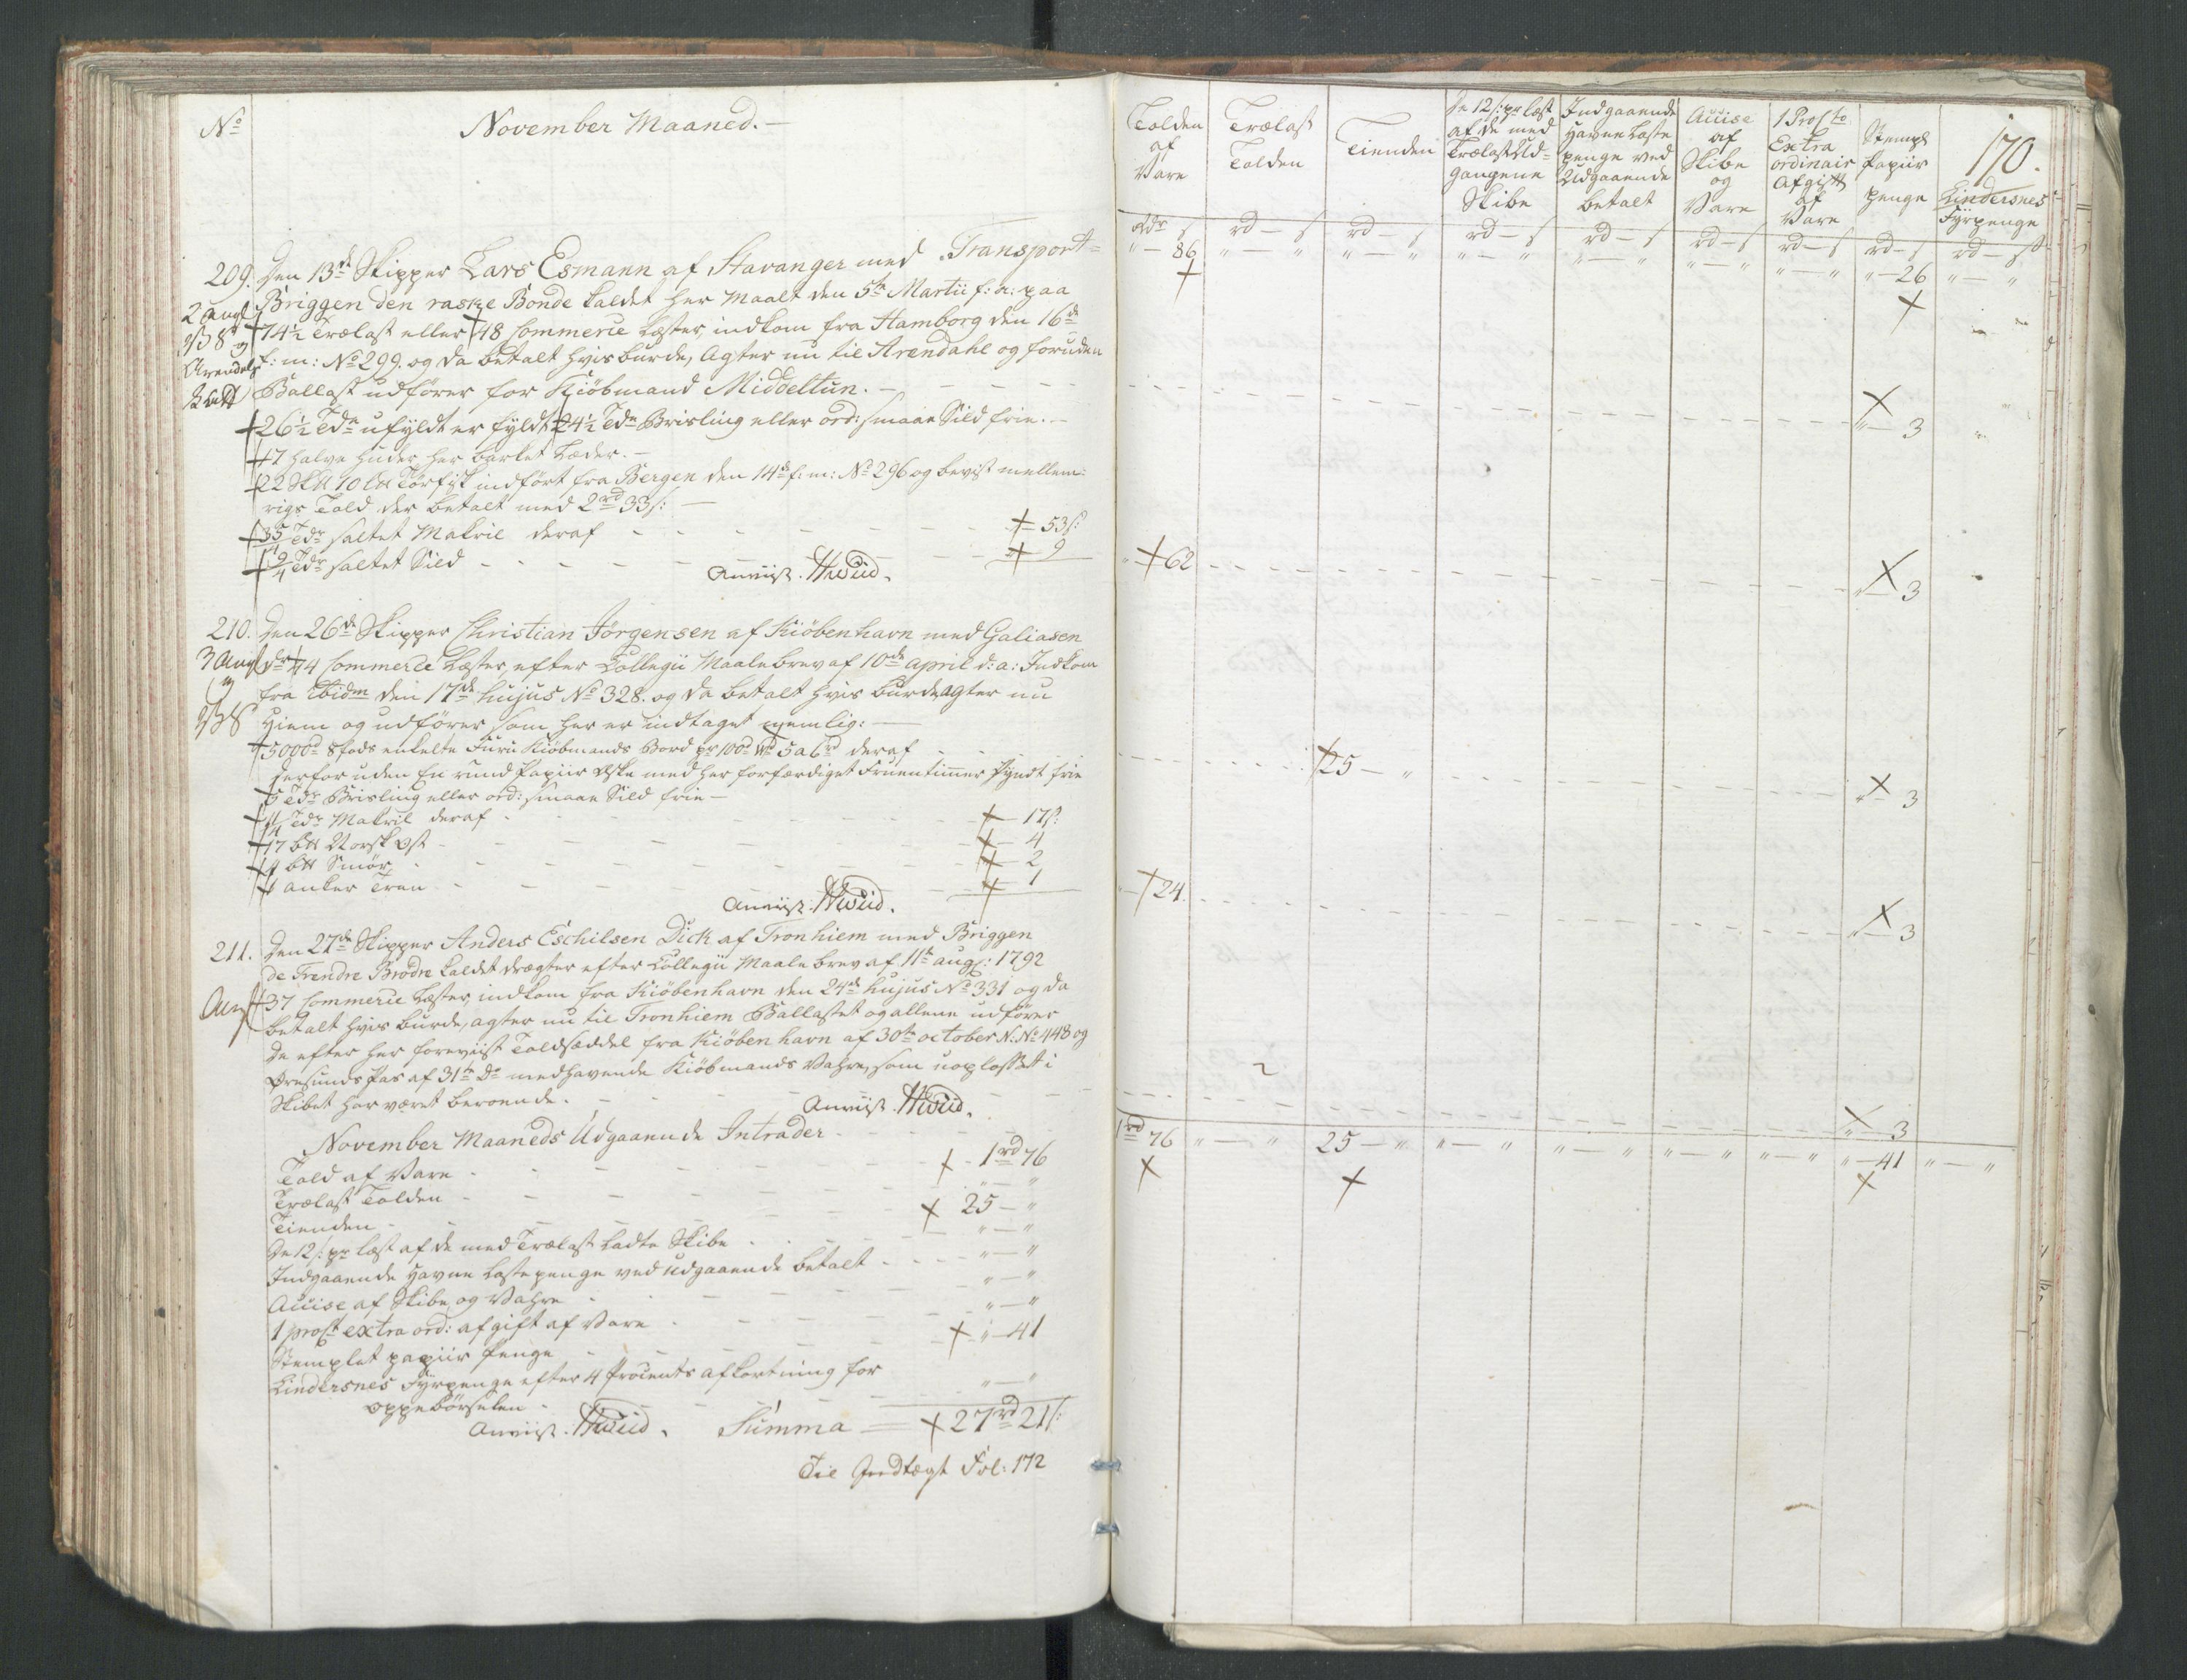 No
November Maaned.
Transport
209. Den 13de Skipper Lars Esmann af Stavanger med
Briggen den raske Bonde kaldet her Maalt den 5te Martii f: a: paa
74½ Trælast eller 48 Commerce Læster, indkom fra Hamborg den 16de
f: m: No 299. og da betalt hvis burde, Agter nu til Arendahl og foruden
Ballast udfører for Kiöbmand Middeltun.
26½ Tdr ufyldt er fyldt 24½ Tdr Brisling eller ord: smaae Sild frie.
17 halve Huder her barket Læder.
22 Sk℔ 10 L℔ Törfisk indfört fra Bergen den 14de f: m: No 296 og bevist mellem-
rigs Told der betalt med 2rd 33s:
Tdr saltet Makril deraf 53s:
Tdr saltet Sild 9
Anviist. Hwiid.
210. Den 26de Skipper Christian Jörgensen af Kiöbenhavn med Galiasen
Commerce Læster, efter Collegii Maalebrev af 10de April d: a: Indkom
fra Ibidm den 17de hujus No 328. og da betalt hvis burde, Agter nu
Hiem og udförer som her er indtaget nemlig:
5000d 8 fods enkelte Furu Kiöbmands Bord pr 100d 5 a 6rd deraf
Herforuden En rund Papiir Æske med her forfærdiget Fruentimmer Pyndt frie
5 Tdr Brisling eller ord: smaae Sild frie
Tdr Makril deraf 17s:
17 b℔ Norsk Ost 4
9 b℔ Smör 2
1 Anker Tran 1
Anviist. Hwiid.
211. Den 27de Skipper Anders Eschilsen Dick af Tronhiem med Briggen
de Trende Brödre kaldet drægtig efter Collegii Maale brev af 11te aug: 1792
37 Commerce Læster, indkom fra Kiöbenhavn den 24de hujus No 331 og da
betalt hvis burde, agter nu til Tronhiem Ballastet og allene udförer
de efter her foreviist Toldsæddel fra Kiöbenhavn af 30te october N: No 448 og
Öresunds Pas af 31te Do medhavende Kiöbmands Vahre, som uoplosset i
Skibet har været beroende.
Anviist. Hwiid.
November Maaneds Udgaaende Intrader
Told af Vare 1rd 76
Trælast Tolden " — "
Tienden 25 — "
De 12s: pr Læst af de med Trælast ladte Skibe " — "
Indgaaende Havne Lastepenge ved udgaaende betalt " — "
Accise af Skibe og Vahre " — "
1 proCto extra ord: afgift af Vare " — "
Stemplet papiir Penge " — 41
Lindersnes Fyrpenge efter 4 Procents afkortning for
oppebörselen " — "
Anviist. Hwiid. Summa 27rd 21s:
Til Indtægt Fol: 172
Tolden af Vare
Trælast Tolden
Tienden
De 12s: pr læst af de med Trælast Udgangene Skibe
Indgaaende Havne Laste penge ved Udgaaende betalt
Accise af Skibe og Vare
1 ProCto Extra ordinair Afgift af Vare
Stempl Papiir Penge
170.
Lindersnes Fyrpenge
Rdr s rd — s rd — s rd — s rd — s rd — s rd — s rd — s rd — s
" — 86 " — " " — " " — " " — " " — " " — " " — 26 " — "
" — 3
" — 62 " — 3
25 — " " — 3
" — 24. " — 3
" — 3
1rd 76 " — " 25 — " " — " " — " " — " " — " " — 41 " — "